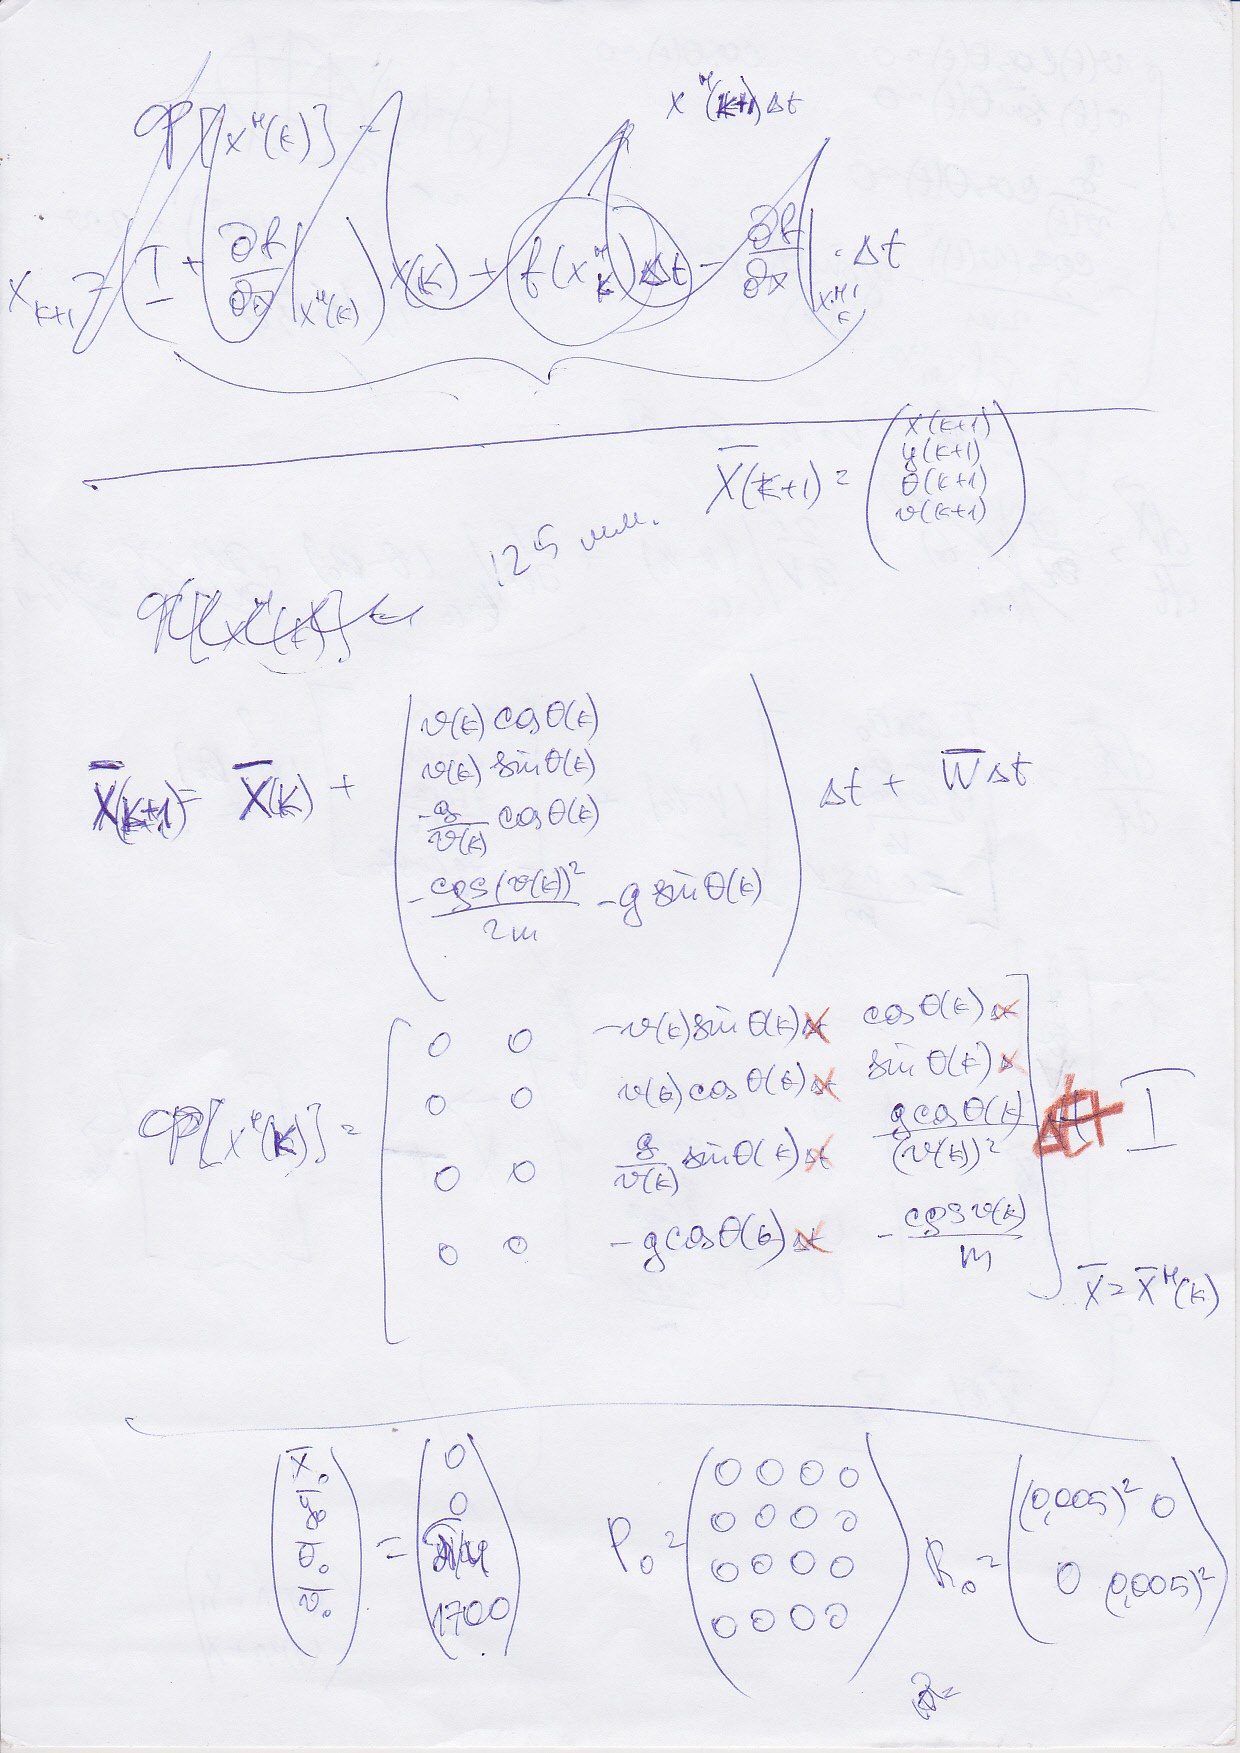 xᴴ(k+1)Δt
φ[xᴴ(k)] =
x_{k+1} = (I + ∂f/∂x|_{xᴴ(k)}) x(k) + f(xᴴ_k)Δt - ∂f/∂x|_{xᴴ_k} · Δt
X̄(k+1) = (x(k+1)
y(k+1)
θ(k+1)
v(k+1))
125
φ[xᴴ(k)] =
X̄(k+1) = X̄(k) + (v(k) cosθ(k)
v(k) sinθ(k)
-g/v(k) cosθ(k)
-cρs(v(k))²/2m - g sinθ(k)) Δt + W̄Δt
φ[xᴴ(k)] = [0 0 -v(k)sinθ(k)Δt cosθ(k)Δt
0 0 v(k)cosθ(k)Δt sinθ(k)Δ
0 0 g/v(k) sinθ(k)Δt gcosθ(k)/(v(k))²
0 0 -gcosθ(k)Δt -cρsv(k)/m] Δt + I
X̄ = X̄ᴴ(k)
(x̄₀ ȳ₀ θ̄₀ v̄₀) = (0
0
π/4
1700)
P₀ = (0 0 0 0
0 0 0 0
0 0 0 0
0 0 0 0)
R₀ = ((0,005)² 0
0 (0,005)²)